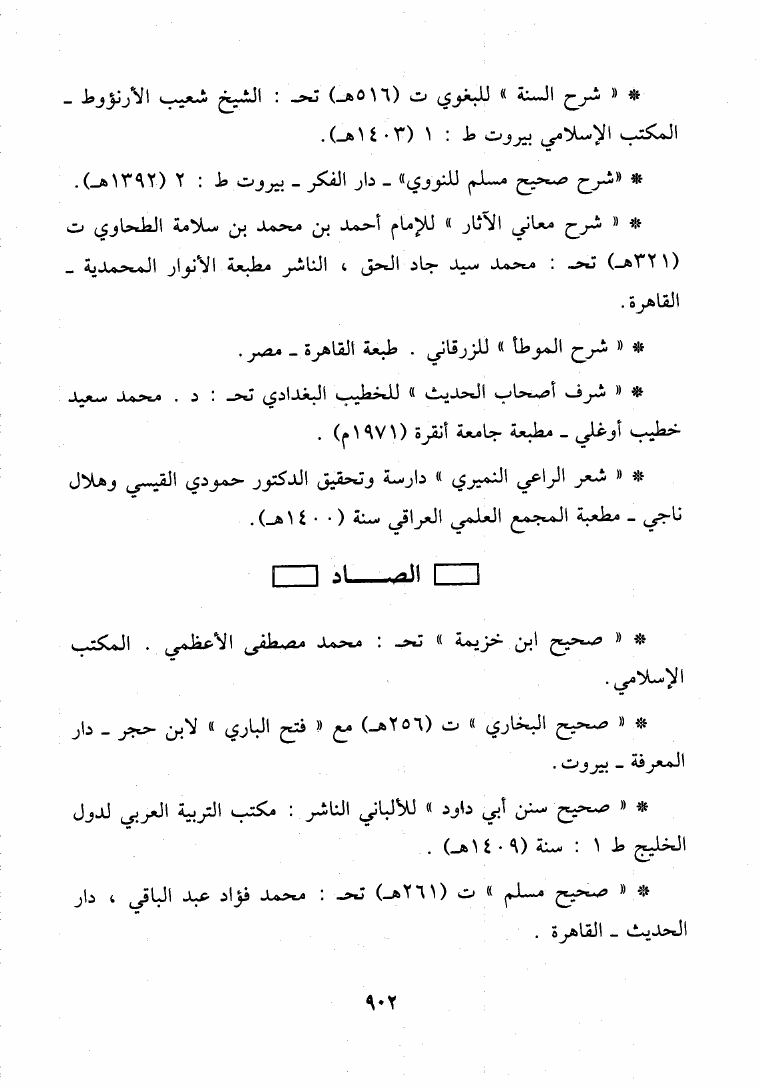 * « شرح السنة » للبغوي ت (٥١٦هـ) تحـ : الشيخ شعيب الأرنؤوط ـ
المكتب الإسلامي بيروت ط : ١ (١٤٠٣هـ).
* «شرح صحيح مسلم للنووي» ـ دار الفكر ـ بيروت ط : ٢ (١٣٩٢هـ).
* « شرح معاني الآثار » للإمام أحمد بن محمد بن سلامة الطحاوي ت
(٣٢١هـ) تحـ : محمد سيد جاد الحق ، الناشر مطبعة الأنوار المحمدية ـ
القاهرة.
* « شرح الموطأ » للزرقاني . طبعة القاهرة ـ مصر.
* « شرف أصحاب الحديث » للخطيب البغدادي تحـ : د . محمد سعيد
خطيب أوغلي ـ مطبعة جامعة أنقرة (١٩٧١م) .
* « شعر الراعي النميري » دارسة وتحقيق الدكتور حمودي القيسي وهلال
ناجي ـ مطعبة المجمع العلمي العراقي سنة (١٤٠٠هـ).
الصـــاد
* « صحيح ابن خزيمة » تحـ : محمد مصطفى الأعظمي . المكتب
الإسلامي.
* « صحيح البخاري » ت (٢٥٦هـ) مع « فتح الباري » لابن حجر ـ دار
المعرفة ـ بيروت.
* « صحيح سنن أبي داود » للألباني الناشر : مكتب التربية العربي لدول
الخليج ط ١ : سنة (١٤٠٩هـ) .
* « صحيح مسلم » ت (٢٦١هـ) تحـ : محمد فؤاد عبد الباقي ، دار
الحديث ـ القاهرة .
٩٠٢